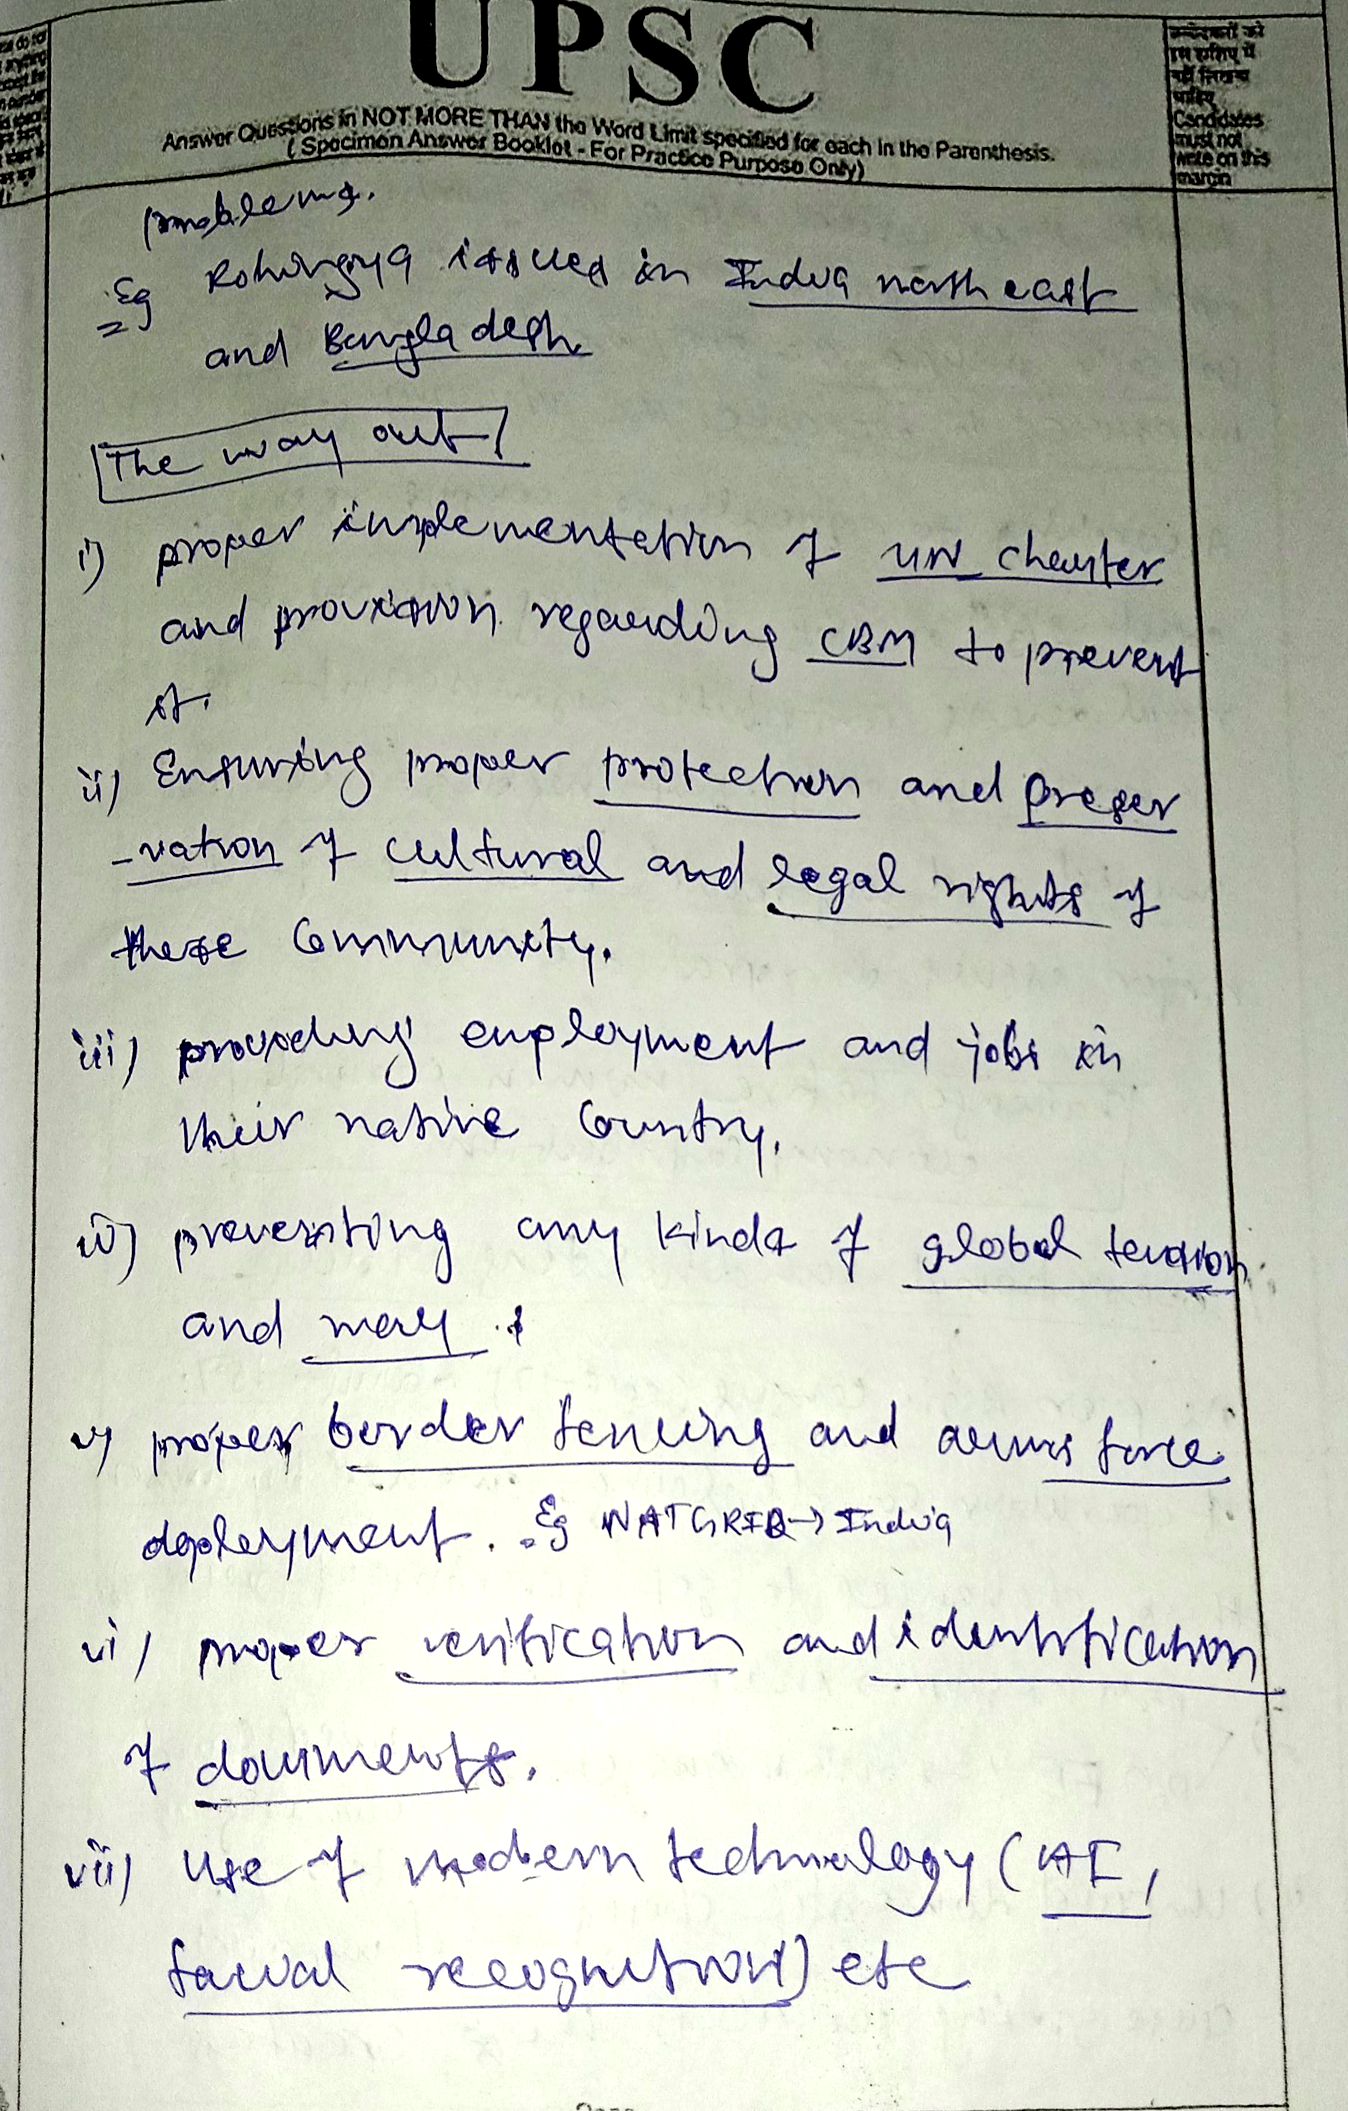 UPSC
Answer Questions in NOT MORE THAN the Word Limit specified for each in the Parenthesis.
(Specimen Answer Booklet - For Practice Purpose Only)
उम्मीदवारों को
इस हाशिए में
नहीं लिखना
चाहिए
Candidates
must not
write on this
margin
problems.
Eg Rohingya issues in India north east
and Bangladesh
The way out
i) proper implementation of UN charter
and provision regarding CBM to prevent
it.
ii) Ensuring proper protection and preser
-vation of cultural and legal rights of
these Community.
iii) providing employment and jobs in
their native Country.
iv) preventing any kinds of global tension
and
v) proper border fencing and arms force
deployment. Eg NATGRID → India
vi) proper verification and identification
of documents.
vii) Use of modern technology (AI,
facial recognition) etc